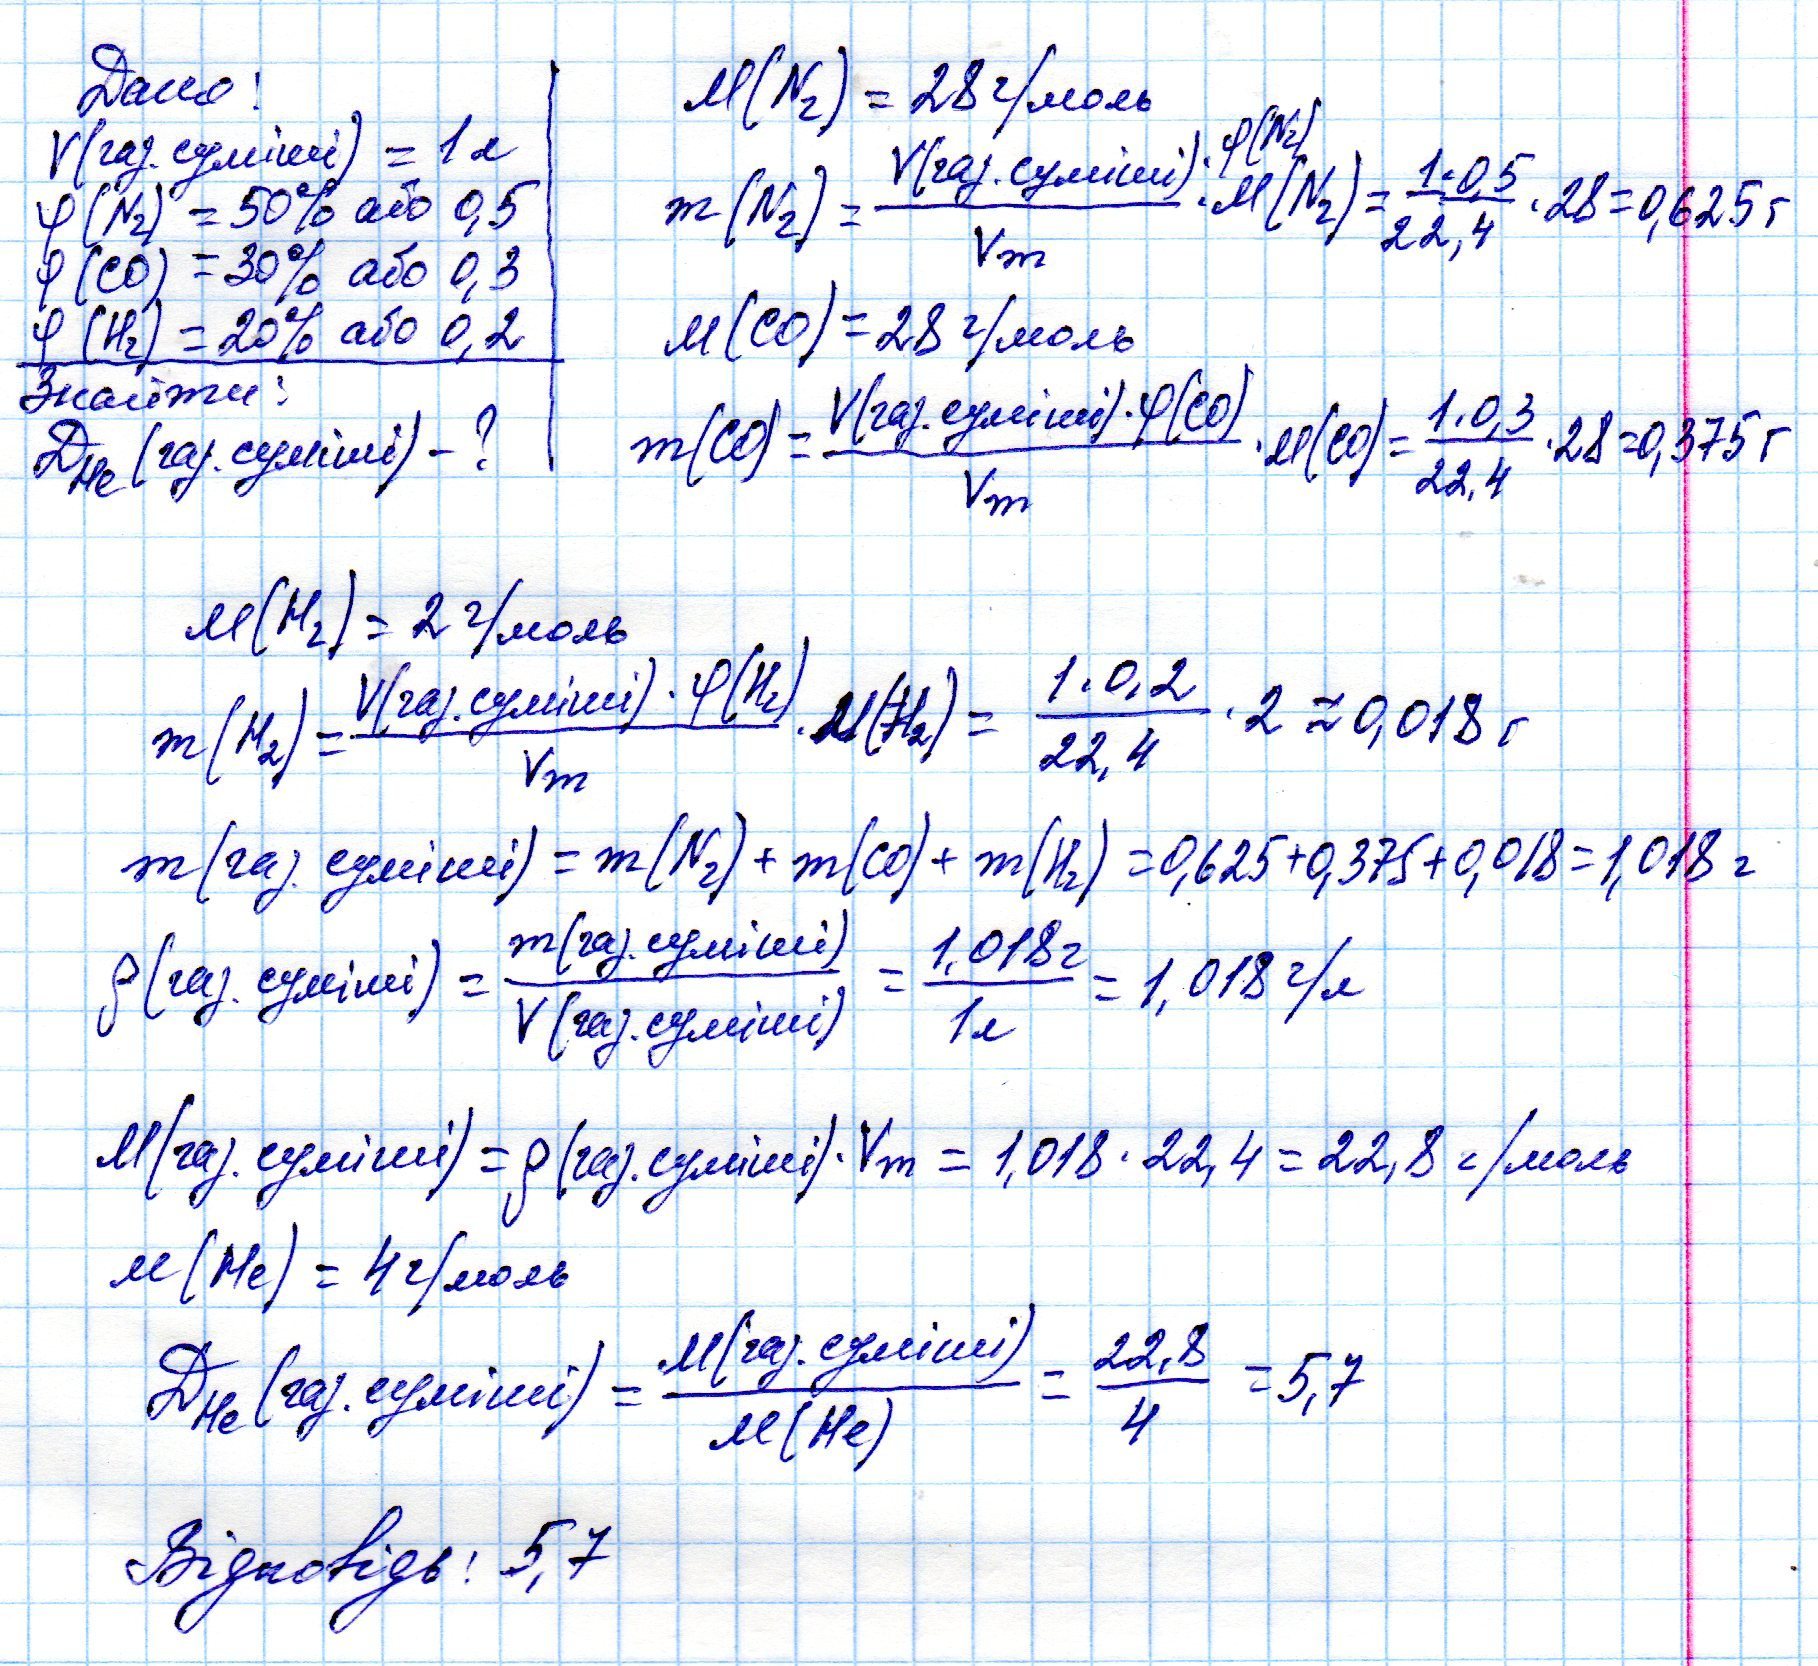 Дано:
V(газ. суміші) = 1 л
φ(N₂) = 50% або 0,5
φ(CO) = 30% або 0,3
φ(H₂) = 20% або 0,2
Знайти:
D_He(газ. суміші) - ?
M(N₂) = 28 г/моль
m(N₂) = V(газ. суміші) · φ(N₂) / Vm · M(N₂) = 1·0,5 / 22,4 · 28 = 0,625 г
M(CO) = 28 г/моль
m(CO) = V(газ. суміші) · φ(CO) / Vm · M(CO) = 1·0,3 / 22,4 · 28 = 0,375 г
M(H₂) = 2 г/моль
m(H₂) = V(газ. суміші) · φ(H₂) / Vm · M(H₂) = 1·0,2 / 22,4 · 2 ≈ 0,018 г
m(газ. суміші) = m(N₂) + m(CO) + m(H₂) = 0,625+0,375+0,018 = 1,018 г
ρ(газ. суміші) = m(газ. суміші) / V(газ. суміші) = 1,018 г / 1 л = 1,018 г/л
M(газ. суміші) = ρ(газ. суміші) · Vm = 1,018 · 22,4 = 22,8 г/моль
M(He) = 4 г/моль
D_He(газ. суміші) = M(газ. суміші) / M(He) = 22,8 / 4 = 5,7
Відповідь: 5,7